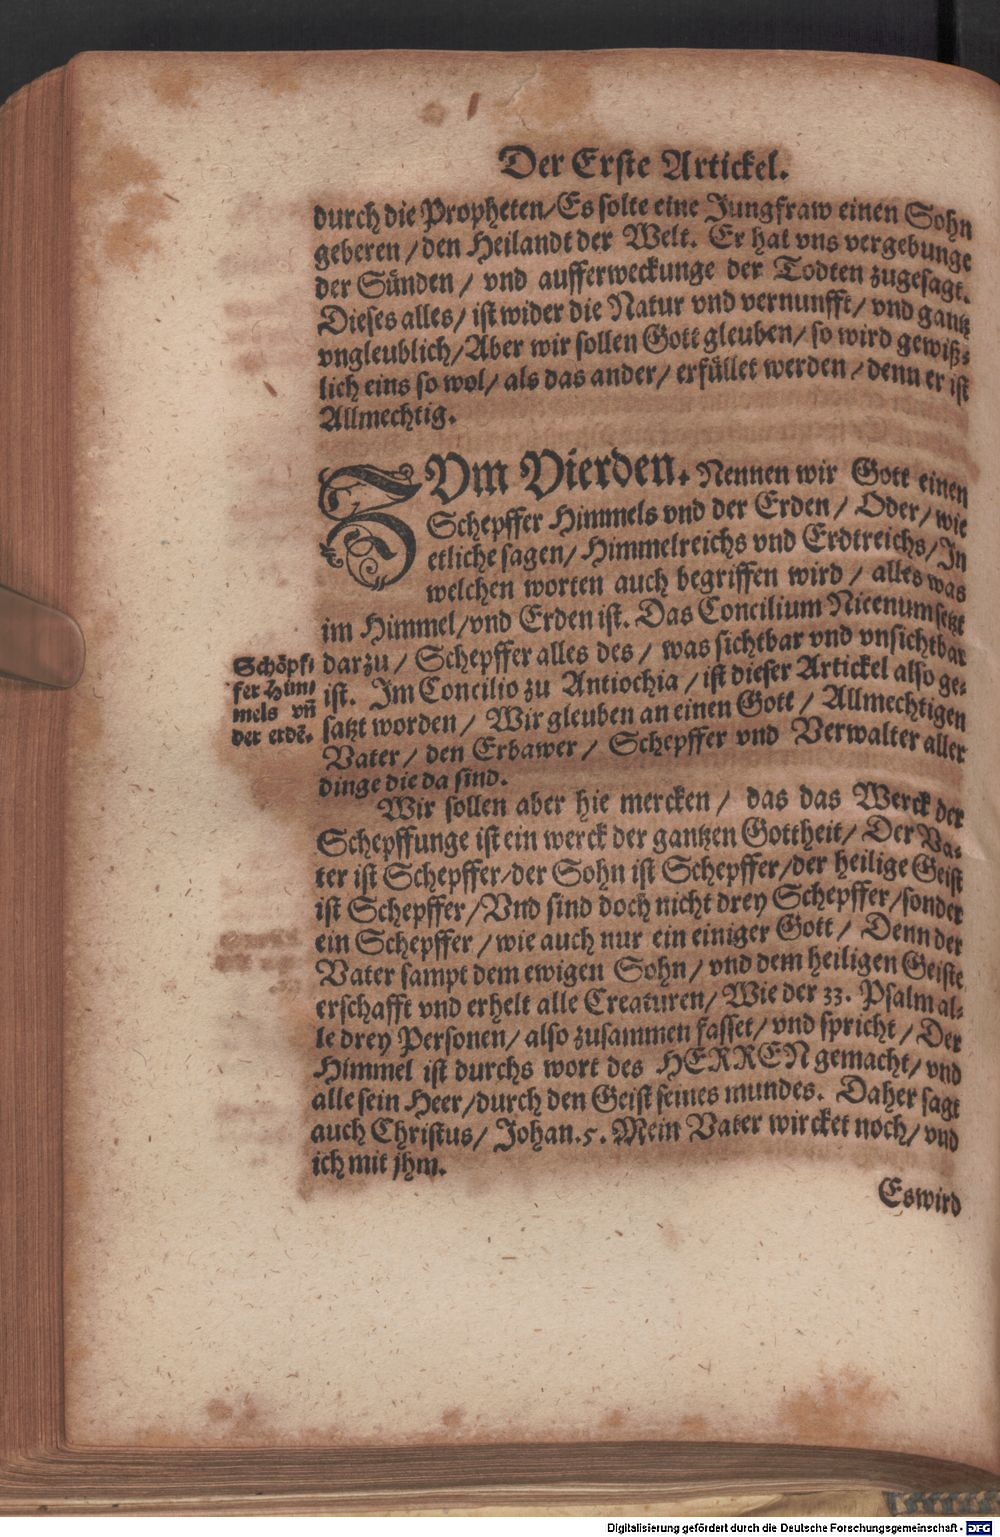 Der Erste Artickel.
durch die Propheten/Es solte eine Jungfraw einen Sohn
geberen/den Heilandt der Welt. Er hat vns vergebunge
der Sünden/ vnd aufferweckunge der Todten zugesagt.
Dieses alles/ ist wider die Natur vnd vernunfft/ vnd gantz
vngleublich/Aber wir sollen Gott gleuben/ so wird gewiß-
lich eins so wol/ als das ander/ erfüllet werden/denn er ist
Allmechtig.
ZVm Vierden. Nennen wir Gott einen
Schepffer Himmels vnd der Erden/ Oder/ wie
etliche sagen/ Himmelreichs vnd Erdtreichs/In
welchen worten auch begriffen wird/ alles was
im Himmel/vnd Erden ist. Das Concilium Nicenum setzt
darzu/ Schepffer alles des/ was sichtbar vnd vnsichtbar
ist. Im Concilio zu Antiochia/ ist dieser Artickel also ge-
satzt worden/ Wir gleuben an einen Gott/ Allmechtigen
Vater/ den Erbawer/ Schepffer vnd Verwalter aller
dinge die da sind.
Schöpf-
fer Him-
mels vñ
der erdẽ.
Wir sollen aber hie mercken/ das das Werck der
Schepffunge ist ein werck der gantzen Gottheit/ Der Va-
ter ist Schepffer/der Sohn ist Schepffer/der heilige Geist
ist Schepffer/Vnd sind doch nicht drey Schepffer/sonder
ein Schepffer/wie auch nur ein einiger Gott/ Denn der
Vater sampt dem ewigen Sohn/ vnd dem heiligen Geiste
erschafft vnd erhelt alle Creaturen/ Wie der 33. Psalm al-
le drey Personen/ also zusammen fasset/ vnd spricht/ Der
Himmel ist durchs wort des HERREN gemacht/ vnd
alle sein Heer/durch den Geist seines mundes. Daher sagt
auch Christus/ Johan.5. Mein Vater wircket noch/ vnd
ich mit jhm.
Es wird
Digitalisierung gefördert durch die Deutsche Forschungsgemeinschaft - DFG